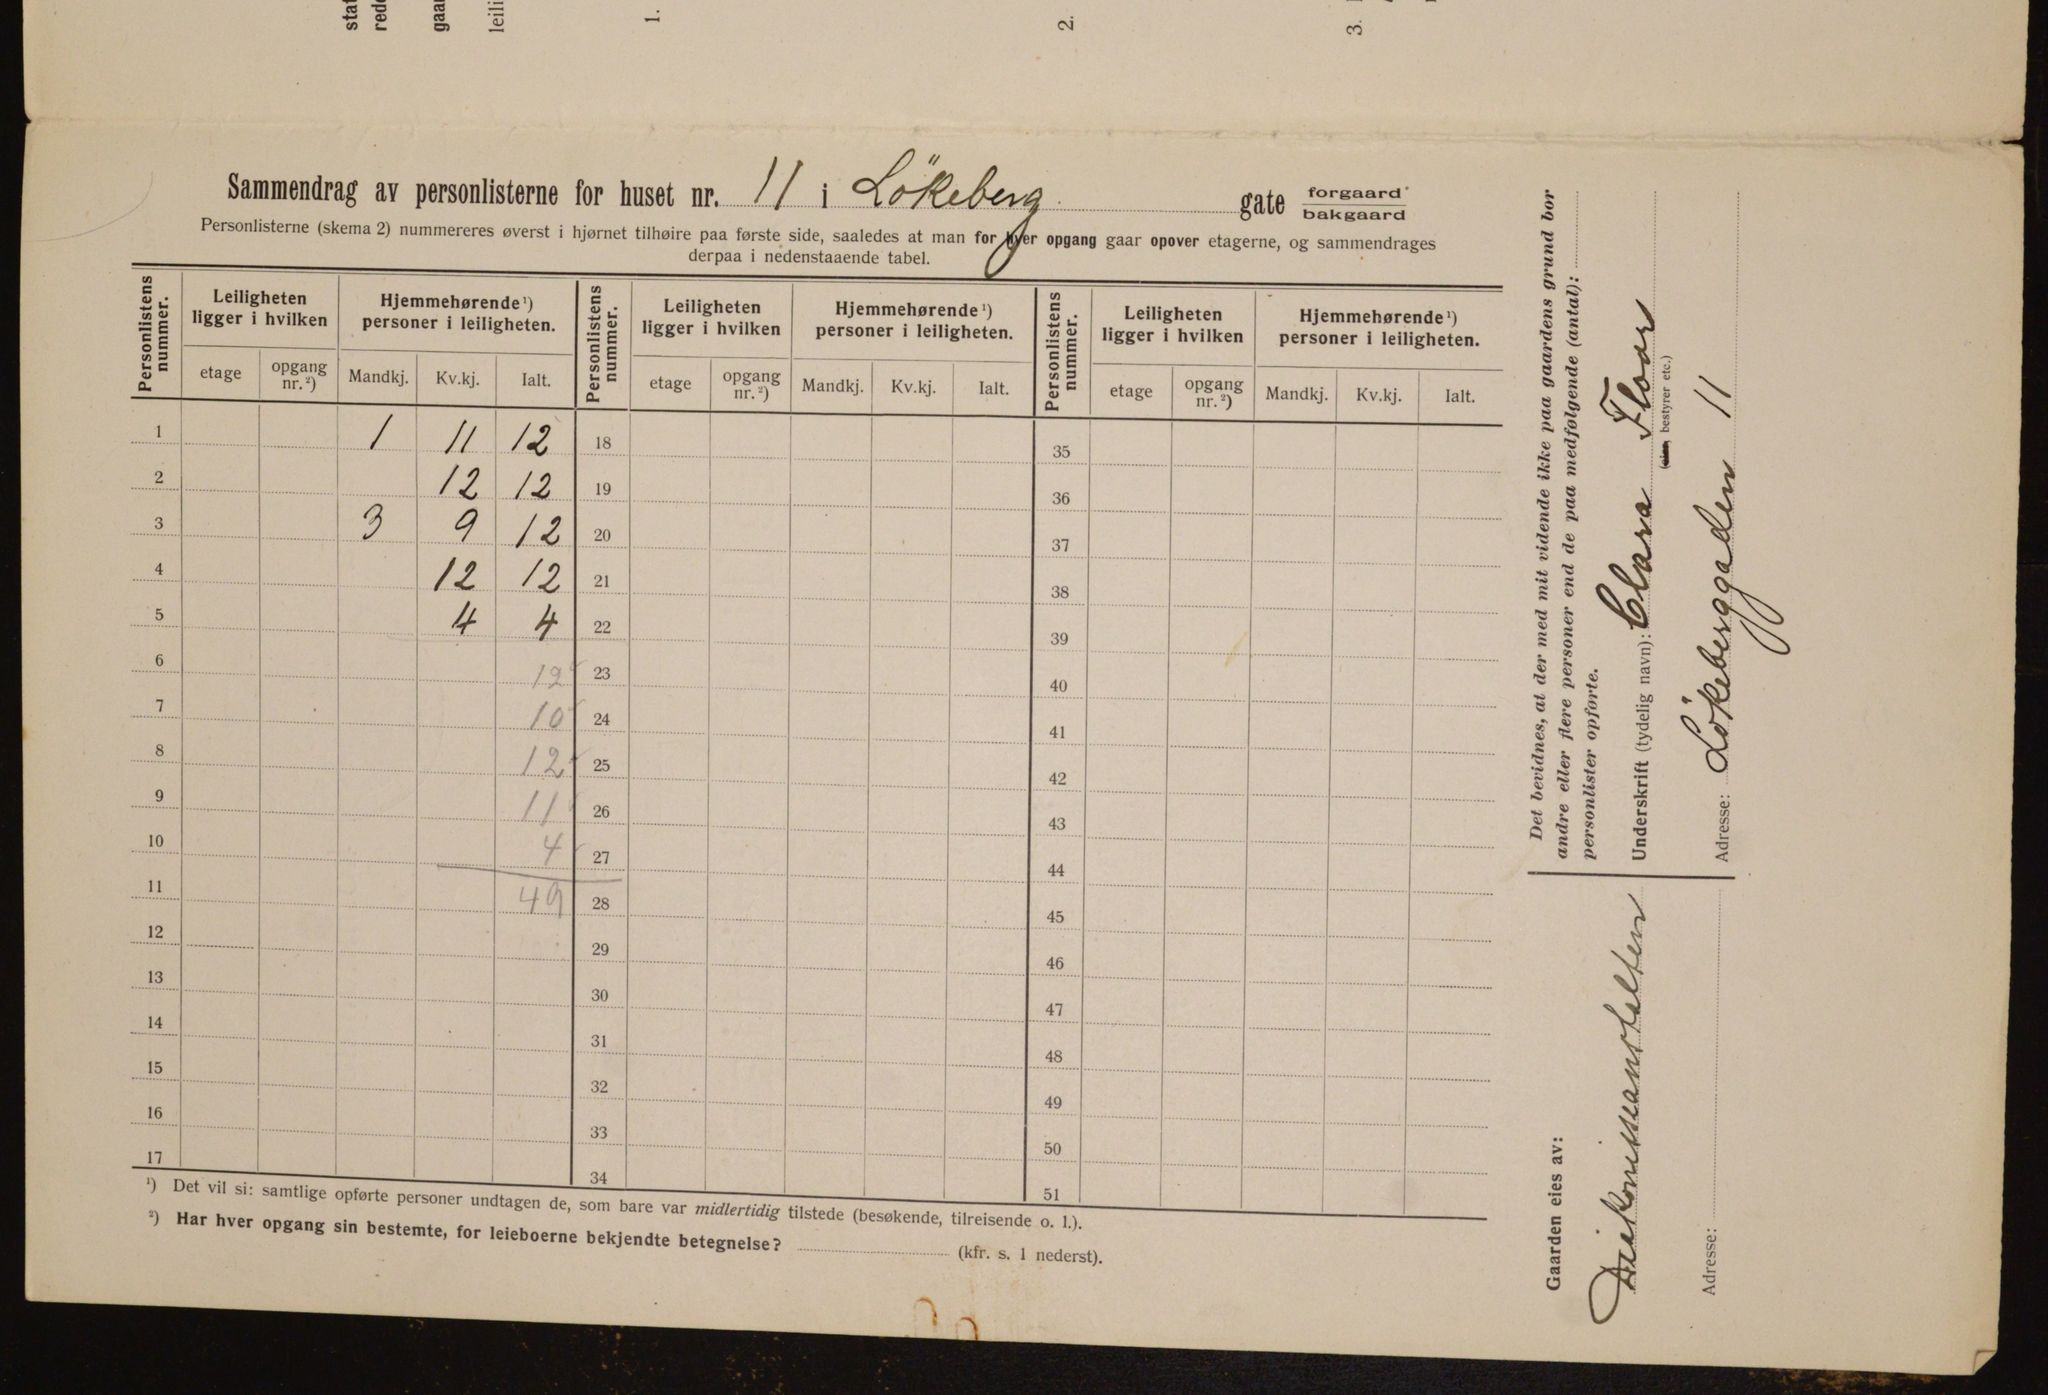 stat
rede
gaar
leili
1.
2.
3.
Sammendrag av personlisterne for huset nr. 11 i Lökeberg gate forgaard bakgaard
Personlisterne (skema 2) nummereres øverst i hjørnet tilhøire paa første side, saaledes at man for hver opgang gaar opover etagerne, og sammendrages
derpaa i nedenstaaende tabel.
Personlistens nummer. Leiligheten ligger i hvilken Hjemmehørende¹) personer i leiligheten. Personlistens nummer. Leiligheten ligger i hvilken Hjemmehørende¹) personer i leiligheten. Personlistens nummer. Leiligheten ligger i hvilken Hjemmehørende¹) personer i leiligheten.
etage opgang nr.²) Mandkj. Kv.kj. Ialt. etage opgang nr.²) Mandkj. Kv.kj. Ialt. etage opgang nr.²) Mandkj. Kv.kj. Ialt.
1 1 11 12 18 35
2 12 12 19 36
3 3 9 12 20 37
4 12 12 21 38
5 4 4 22 39
6 12 23 40
7 10 24 41
8 12 25 42
9 11 26 43
10 4 27 44
11 49 28 45
12 29 46
13 30 47
14 31 48
15 32 49
16 33 50
17 34 51
¹) Det vil si: samtlige opførte personer undtagen de, som bare var midlertidig tilstede (besøkende, tilreisende o. l.).
²) Har hver opgang sin bestemte, for leieboerne bekjendte betegnelse? (kfr. s. 1 nederst).
Det bevidnes, at der med mit vidende ikke paa gaardens grund bor
andre eller flere personer end de paa medfølgende (antal):
personlister opførte.
Underskrift (tydelig navn): Clara Floor
(eier, bestyrer etc.)
Adresse: Lökeberggaden 11
Gaarden eies av:
Diakonisseanstalten
Adresse: